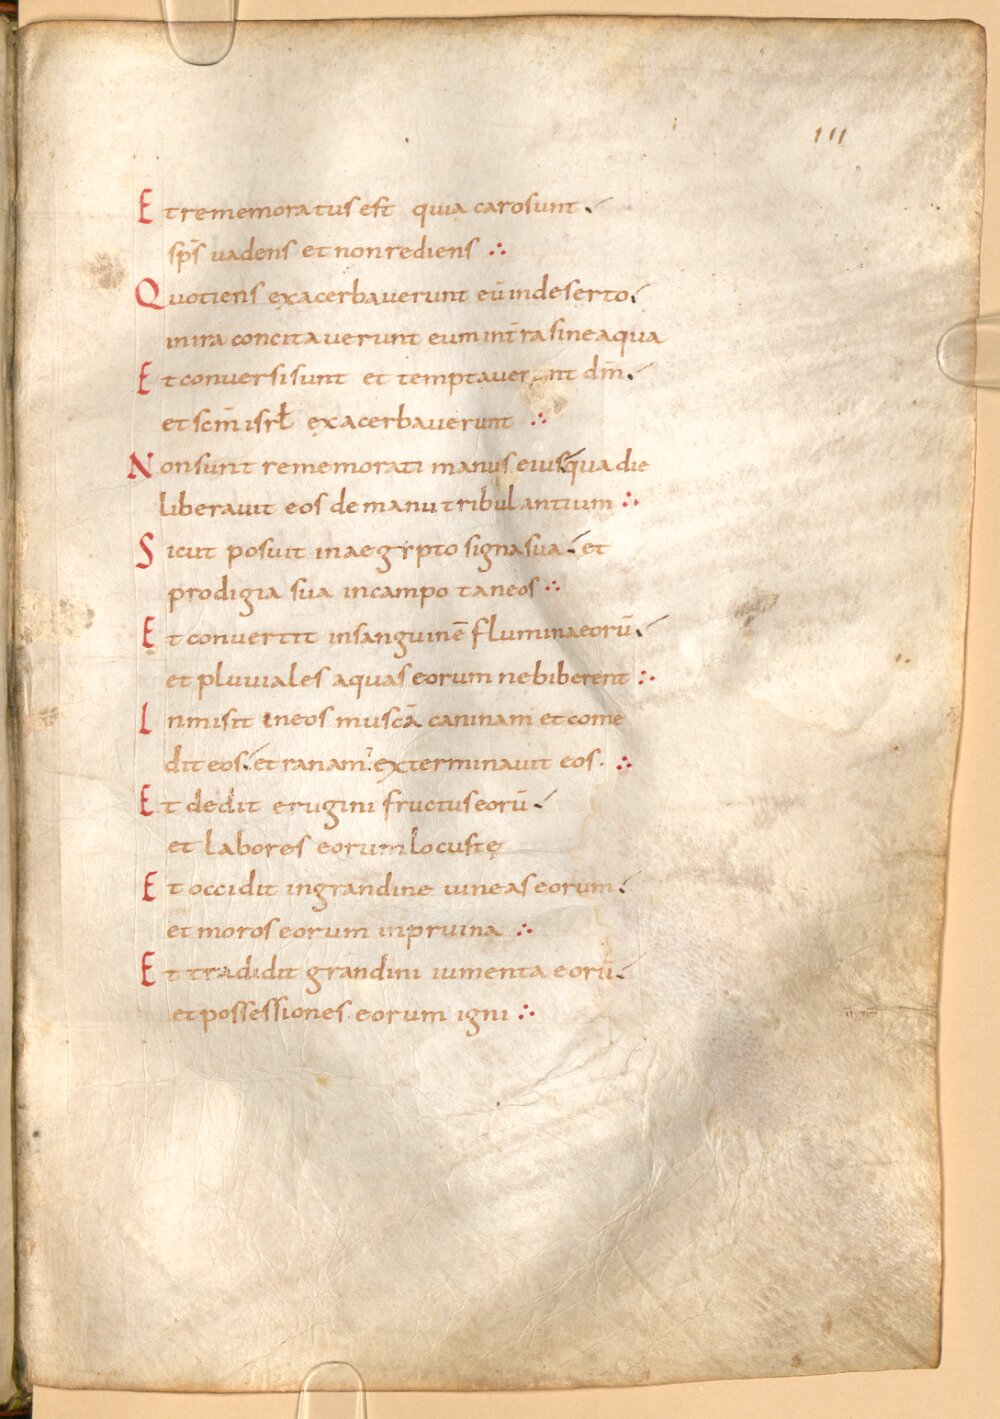 111
Et rememoratus est quia caro sunt
sps̄ uadens et non rediens
Quotiens exacerbaverunt eū in deserto
in ira concitaverunt eum in tr̄a sine aqua
Et conversi sunt et temptaverunt dm̄
et scm̄ isrł exacerbaverunt
Non sunt rememorati manus eius qua die
liberavit eos de manu tribulantium
Sicut posuit in aegypto signa sua et
prodigia sua in campo taneos
Et convertit in sanguinē flumina eorū
et pluviales aquas eorum ne biberent
Inmisit in eos muscā caninam et come
dit eos et ranam et exterminavit eos
Et dedit erugini fructus eorū
et labores eorum locustę
Et occidit in grandine vineas eorum
et moros eorum in pruina
Et tradidit grandini iumenta eorū
et possessiones eorum igni